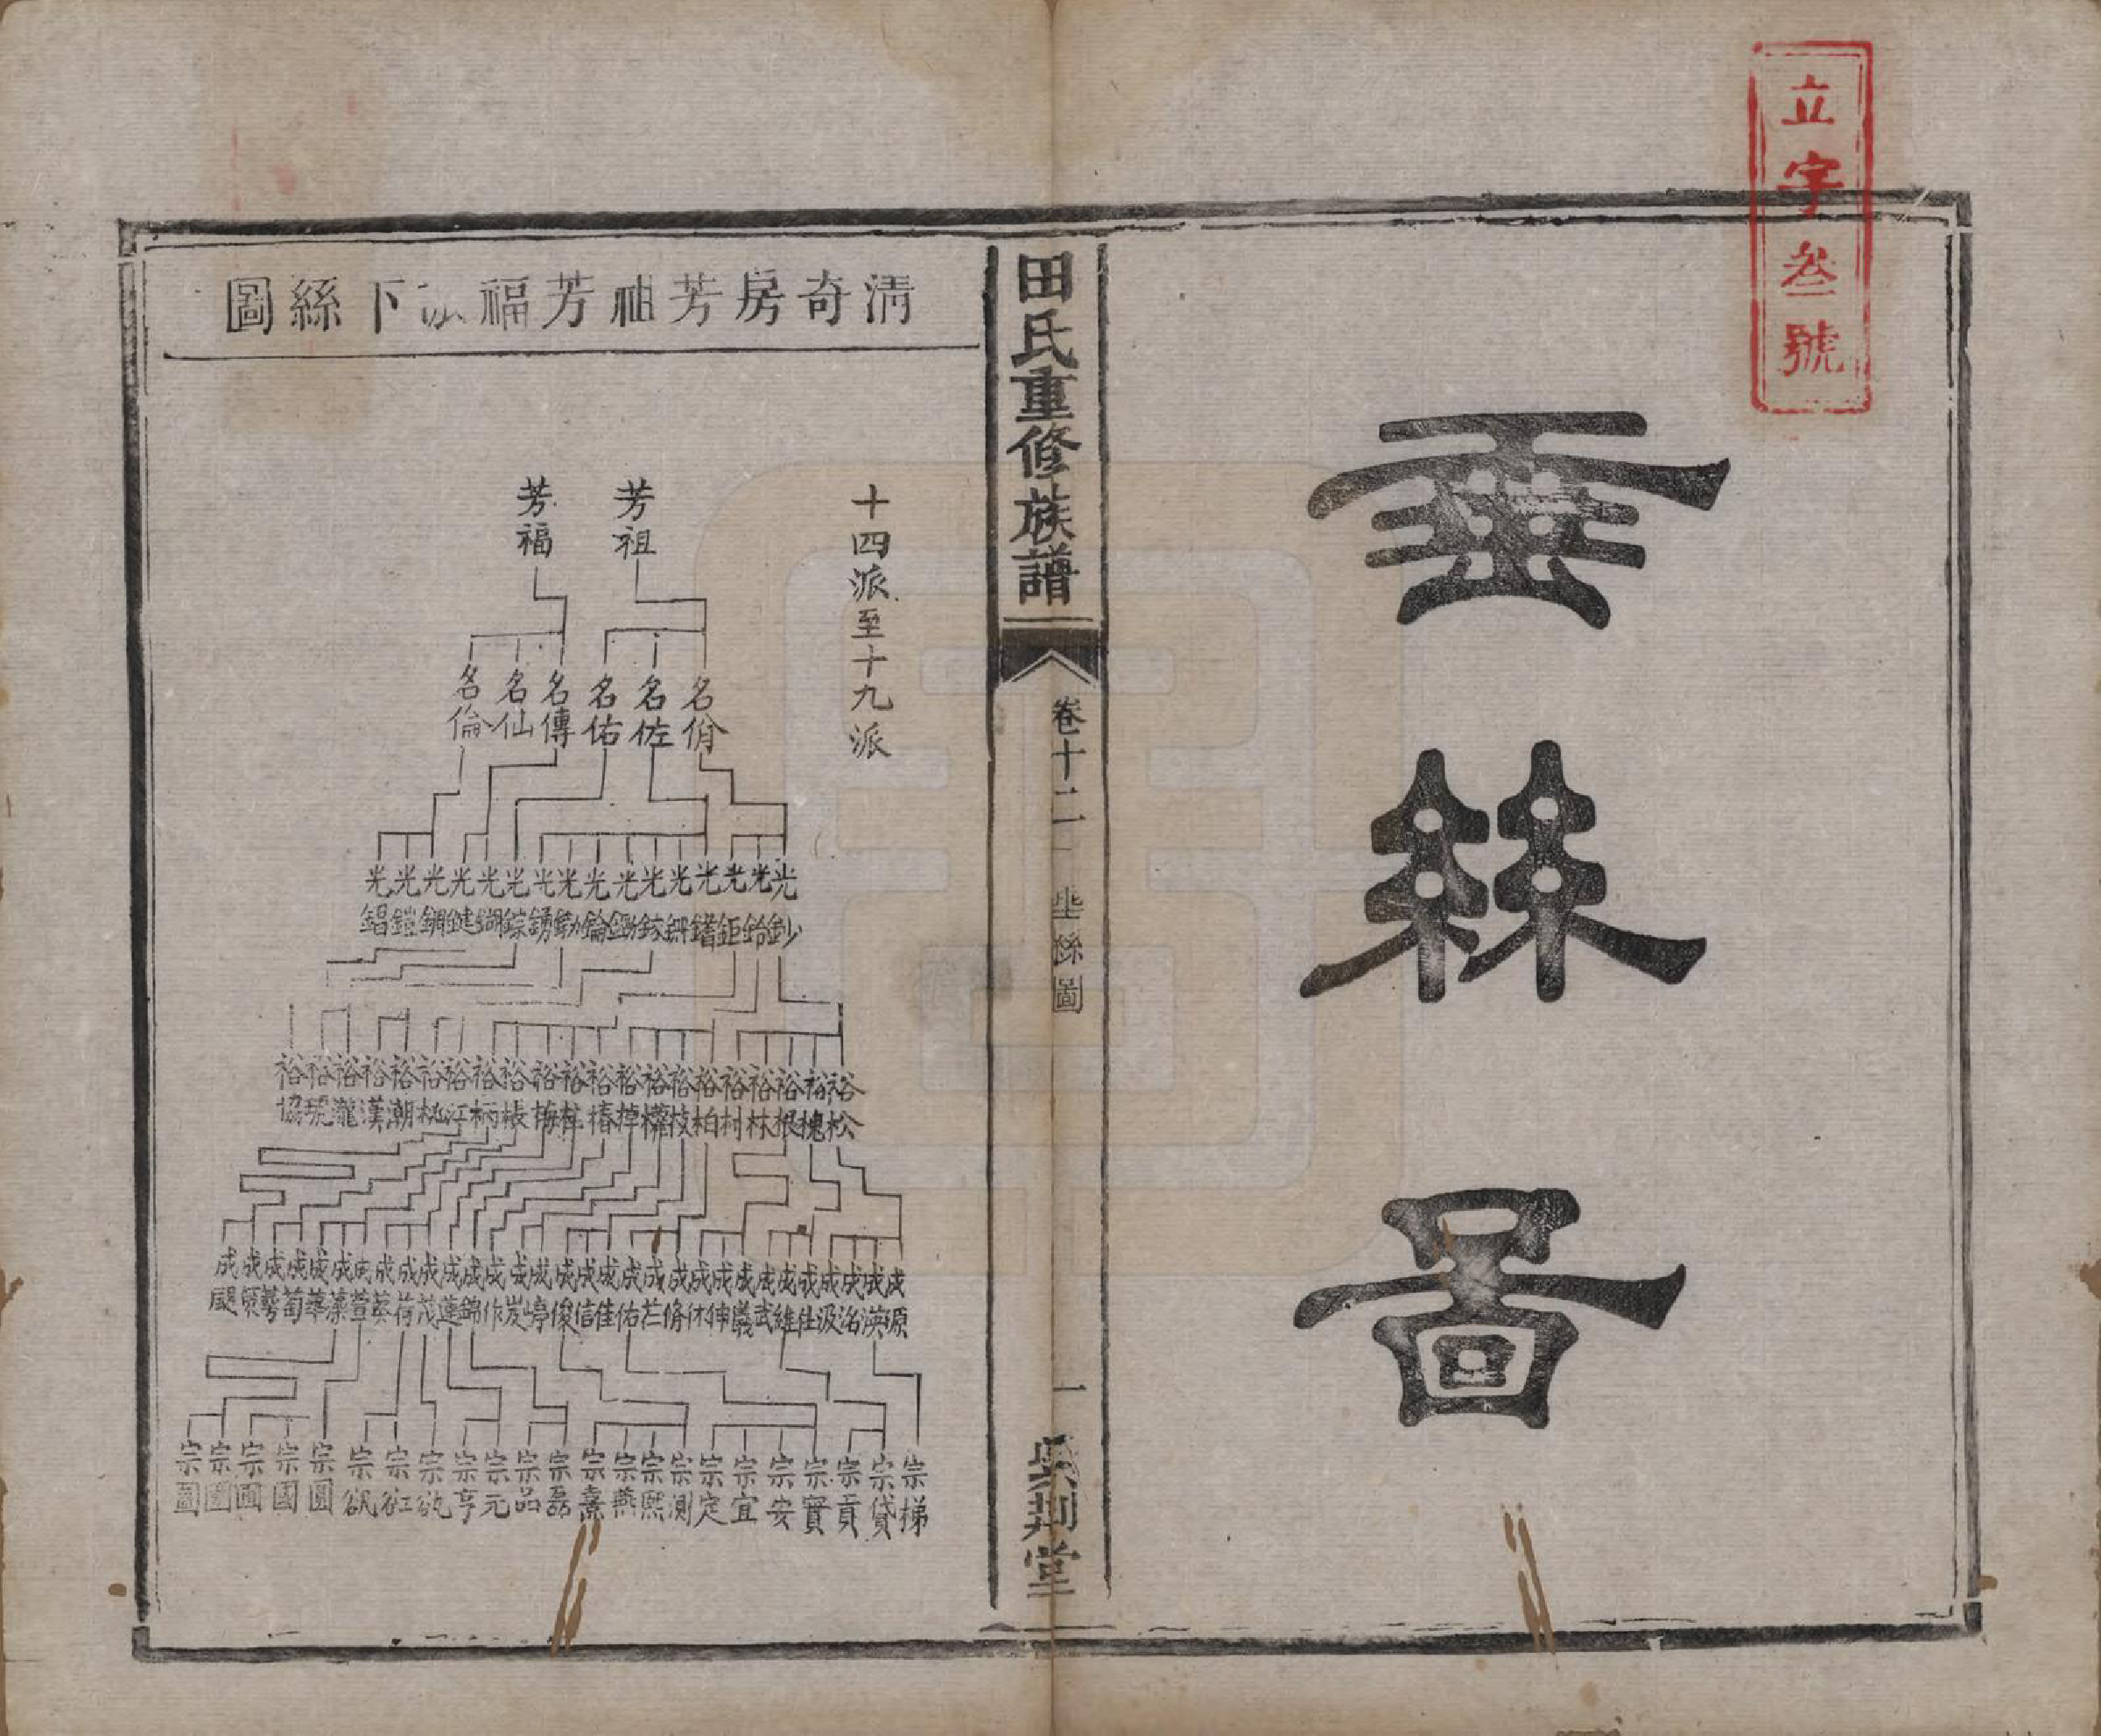 立字叁號
垂絲圖
田氏重修族譜
卷十二
垂絲圖
一
紫荆堂
清奇房芳祖芳福派下絲圖
十四派至十九派
芳祖 芳福
名佾 名佐 名佑 名傳 名仙 名倫
光鈔 光鉛 光鉅 光鐯 光 光 光 光鑰 光 光銹 光錝 光鍸 光鍵 光鋼 光鎧 光錩
裕松 裕槐 裕根 裕林 裕村 裕柏 裕枝 裕 裕樟 裕椿 裕梓 裕梅 裕棖 裕柄 裕江 裕桃 裕潮 裕漢 裕瀧 裕琥 裕協
成源 成渶 成洺 成汲 成仕 成維 成武 成儀 成伸 成休 成脩 成芒 成佑 成佳 成信 成俊 成崞 成炭 成作 成錦 成蓮 成茂 成荷 成葵 成萱 成藻 成華 成萄 成 成 成
宗梯 宗貸 宗貢 宗寶 宗安 宗宜 宗定 宗測 宗熙 宗燕 宗熹 宗磊 宗品 宗元 宗亨 宗 宗 宗 宗圓 宗國 宗 宗 宗圖